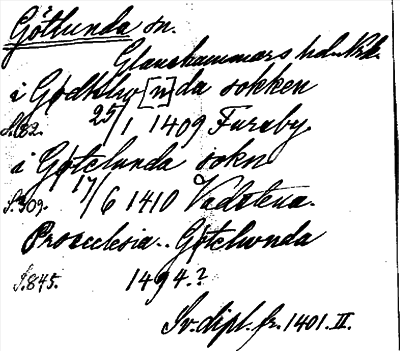 Götlunda sn.
Glanshammars hd. När.
i Gødhelw[n]da sokken
S. 82. 25/1 1409 Fureby.
i Gøtelunda sokn
S. 309. 17/6 1410 Vadstena.
Pro ecclesia .. Gøtelwnda
S. 845. 1494.?
Sv. dipl. fr. 1401. II.